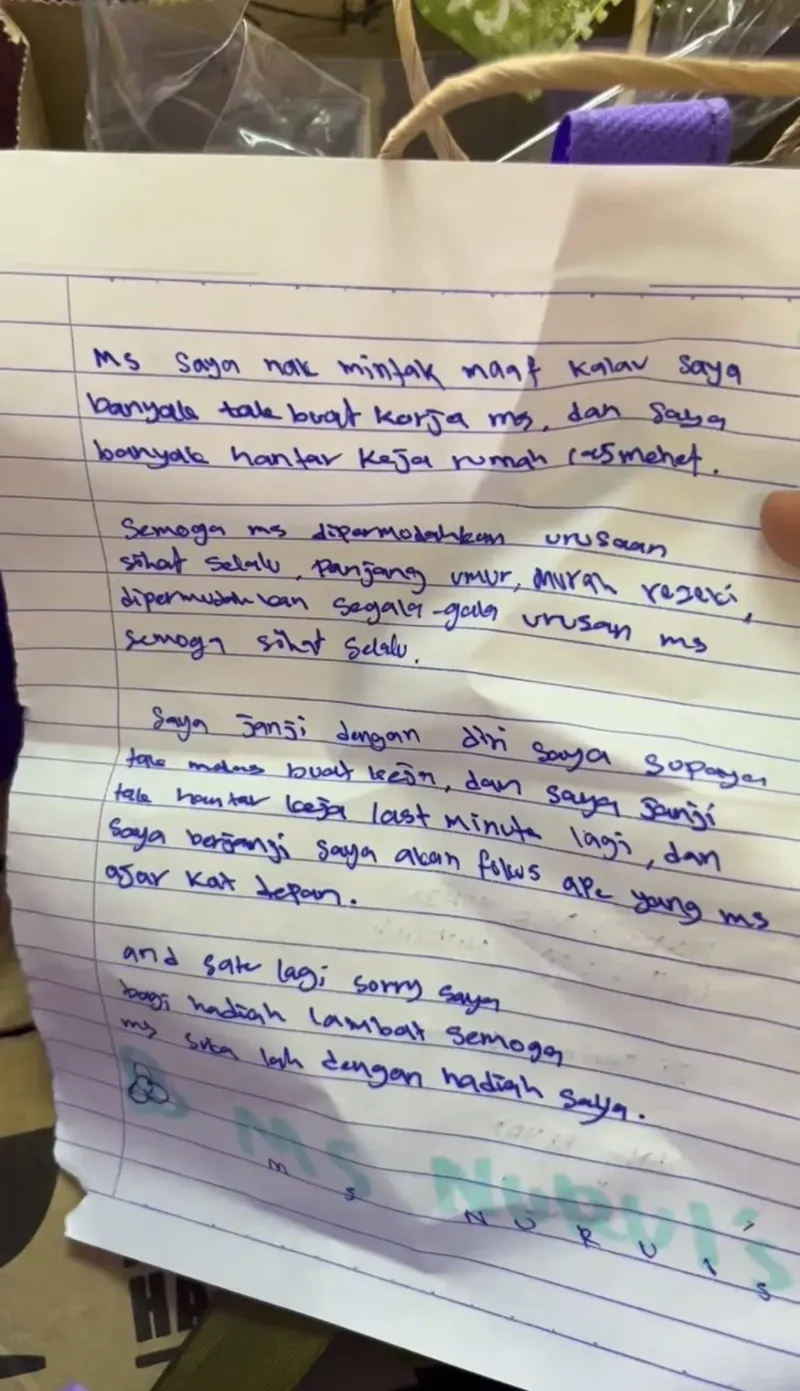 Ms Saya nak mintak maaf kalau saya
banyak tak buat kerja ms, dan saya
banyak hantar keja rumah lasmenet.
Semoga ms dipermodahkan urusaan
sihat selalu, panjang umur, murah rezeki,
dipermudahkan segala-gala urusan ms
semoga sihat selalu.
Saya janji dengan diri saya supaya
tak malas buat keja, dan saya janji
tak hantar keja last minute lagi, dan
Saya berjanji saya akan fokus ape yang ms
ajar kat depan.
and satu lagi sorry saya
bagi hadiah lambat semoga
ms suka lah dengan hadiah saya.
Ms NURUl's
Ms NURUl's
HA